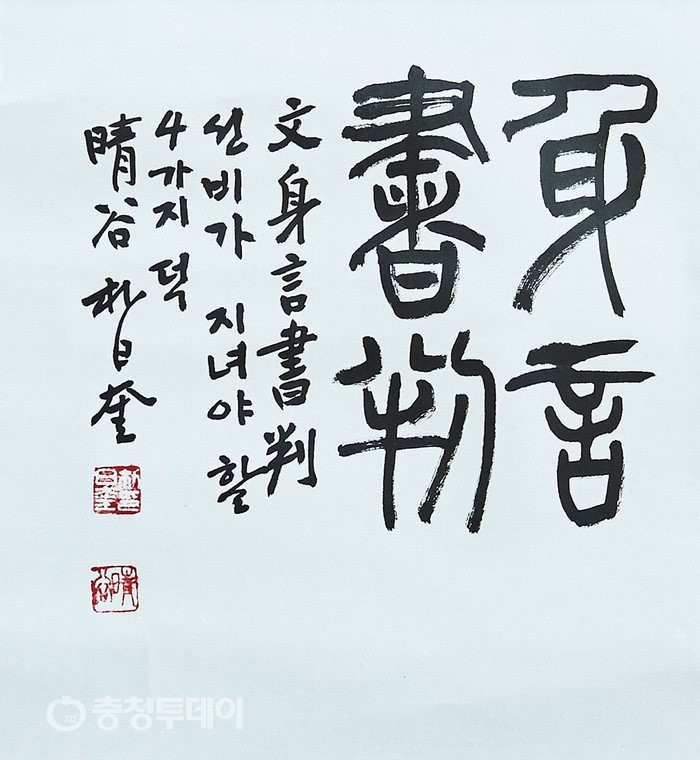 身言
書判
文身言書判
선비가 지녀야 할
4가지 덕
晴谷 朴日奎
충청투데이